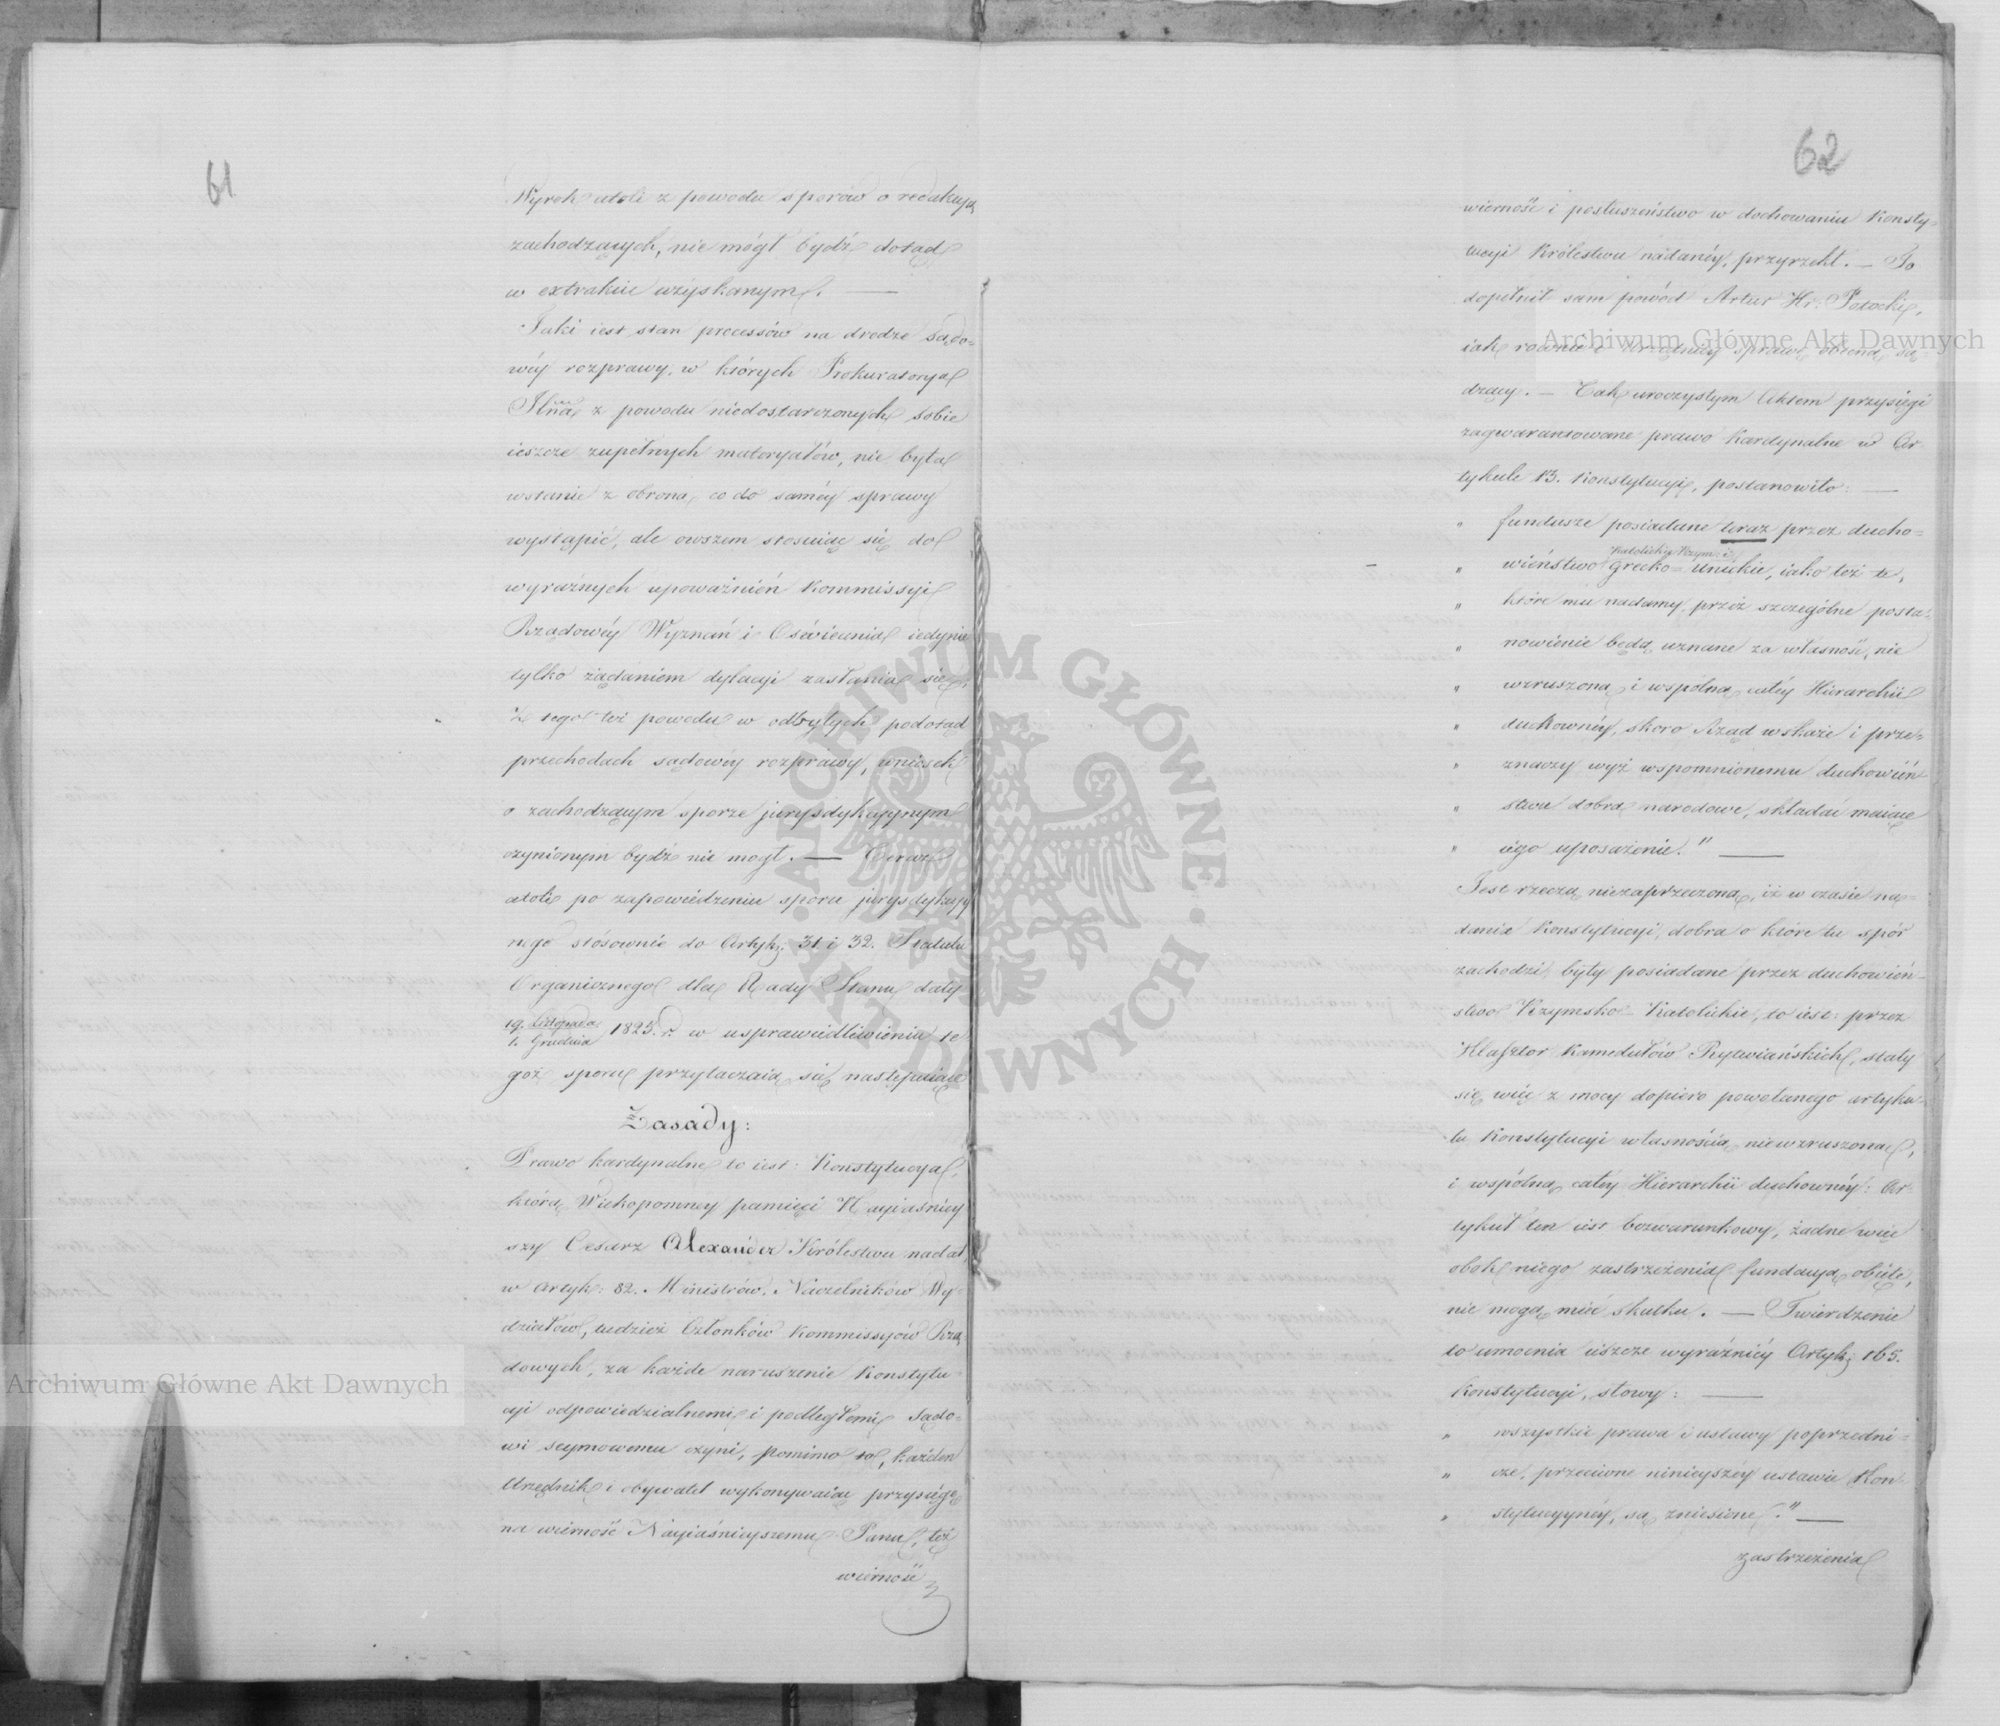 61
Wyrok atoli z powodu sporów o redakcyą
zachodzących, nie mógł bydź dotąd
w extrakcie uzyskanym. —
Taki iest stan processów na drodze sądo-
wéy rozprawy, w których Prokuratorya
Jlna z powodu niedostarczonych sobie
ieszcze zupełnych materyałów, nie była
wstanie z obroną co do saméy sprawy
wystąpić, ale owszem stosuiąc się do
wyraźnych upoważnień Kommissyi
Rządowéy Wyznań i Oświecenia iedynie
tylko żądaniem dylacyi zasłania się.
Z tego też powodu w odbytych podotąd
przechodach sądowéy rozprawy, wniosek
o zachodzącym sporze jurysdykcyynym
czynionym bydź nie mogł. — Teraz
atoli po zapowiedzeniu sporu jurysdykcyy
nego stósownie do Artyk: 31 i 32. Statutu
Organicznego dla Rady Stanu daty
19. Listopada
1. Grudnia 1825. r. w usprawiedliwieniu te
goż sporu przytaczaią się następuiące
Zasady:
Prawo kardynalne to iest: Konstytucya,
którą Wiekopomney pamięci Nayiaśniey
szy Cesarz Alexander Królestwu nadał
w Artyk: 82. Ministrów, Naczelników Wy-
działów, tudzież Członków Kommissyów Rzą-
dowych, za każde naruszenie Konstytu
cyi odpowiedzialnemi i podległemi Sądo-
wi seymowemu czyni, pomimo to, każden
Urzędnik i obywatel wykonywaiąc przysięgę
na wierność Nayiaśnieyszemu Panu, też
wierność
62
wierność i posłuszeństwo w dochowaniu Konsty-
tucyi Królestwu nadanéy, przyrzekł. — To
dopełnił sam powód Artur Hr: Potocki,
iak rownie i Urzędnicy sprawę obecną są
dzący. — Tak uroczystym Aktem przysięgi
zagwarantowane prawo Kardynalne w Ar-
tykule 13. Konstytucyi, postanowiło: —
" fundusze posiadane teraz przez ducho-
Katolickie Rzym: i
" wieństwo Grecko-Unickie, iako też te,
" które mu nadamy przez szczególne posta-
" nowienie będą uznane za własność, nie
" wzruszoną i wspólną całéy Hierarchii
" duchownéy, skoro Rząd wskaże i prze-
" znaczy wyż wspomnionemu duchowień
" stwu dobra narodowe, składać maiące
" iego uposażenie." —
Jest rzeczą niezaprzeczoną, iż w czasie na-
dania Konstytucyi, dobra o które tu spór
zachodzi, były posiadane przez duchowień-
stwo Rzymsko-Katolickie, to iest: przez
Klasztor Kamedułów Rytwiańskich, stały
się więc z mocy dopiero powołanego artyku-
łu Konstytucyi własnością niewzruszoną,
i wspólną całéy Hierarchii duchownéy: Ar-
tykuł ten iest bezwarunkowy, żadne więc
obok niego zastrzeżenia fundacyą obięte,
nie mogą mieć skutku. — Twierdzenie
to umocnia ieszcze wyraźniéy Artyk: 165.
Konstytucyi, słowy: —
" wszystkie prawa i ustawy poprzedni-
" cze, przeciwne ninieyszéy ustawie Kon-
" stytucyynéy, są zniesione." —
zastrzeżenia
Archiwum Główne Akt Dawnych
Archiwum Główne Akt Dawnych
ARCHIWUM GŁÓWNE · AKT DAWNYCH ·